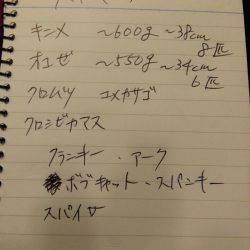 キンメ 〜600g 〜38cm
8匹
オコゼ 〜550g 〜34cm
6匹
クロムツ ユメカサゴ
クロシビカマス
フランキー・アーク
ボブキャット・スパンキー
スパイサ